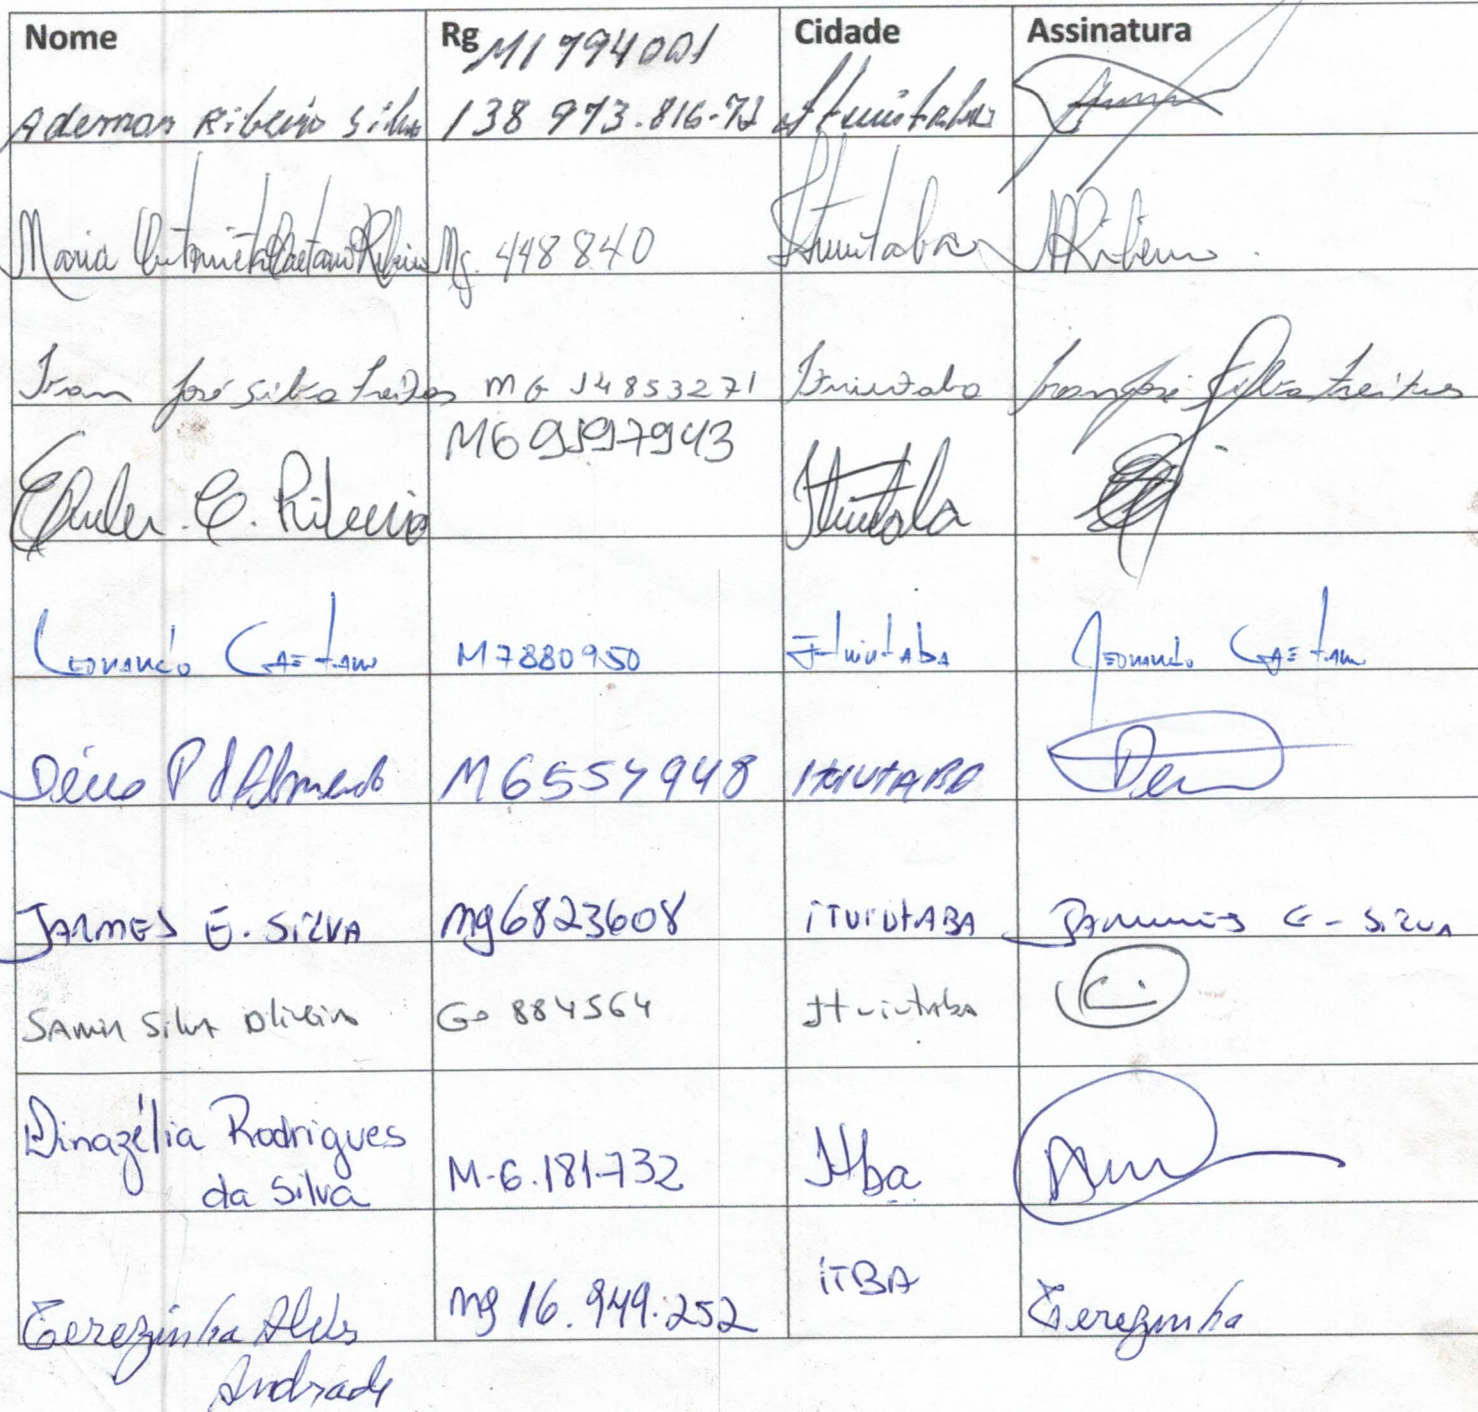 Nome Rg Cidade Assinatura
M1794001
Ademar Ribeiro Silva 138 973.816-72 Ituiutaba
Maria Antonieta Caetano Ribeiro Mg. 448840 Ituiutaba ARibeiro.
Ivan José Silva Freitas MG 14853271 Ituiutaba Ivan José Silva Freitas
Euler. C. Ribeiro Ituiutaba
Leonardo Caetano M7880950 Ituiutaba Leonardo Caetano
Décio P d Almeida M6557948 ITUIUTABA De
JARMES E. SILVA mg6823608 ITUIUTABA JARMES E - SILVA
Samir Silva Oliveira Go 884564 Ituiutaba
Dinazélia Rodrigues
da Silva M-6.181.732 Itba
Terezinha Alves mg 16.949.252 ITBA Terezinha
Andrade